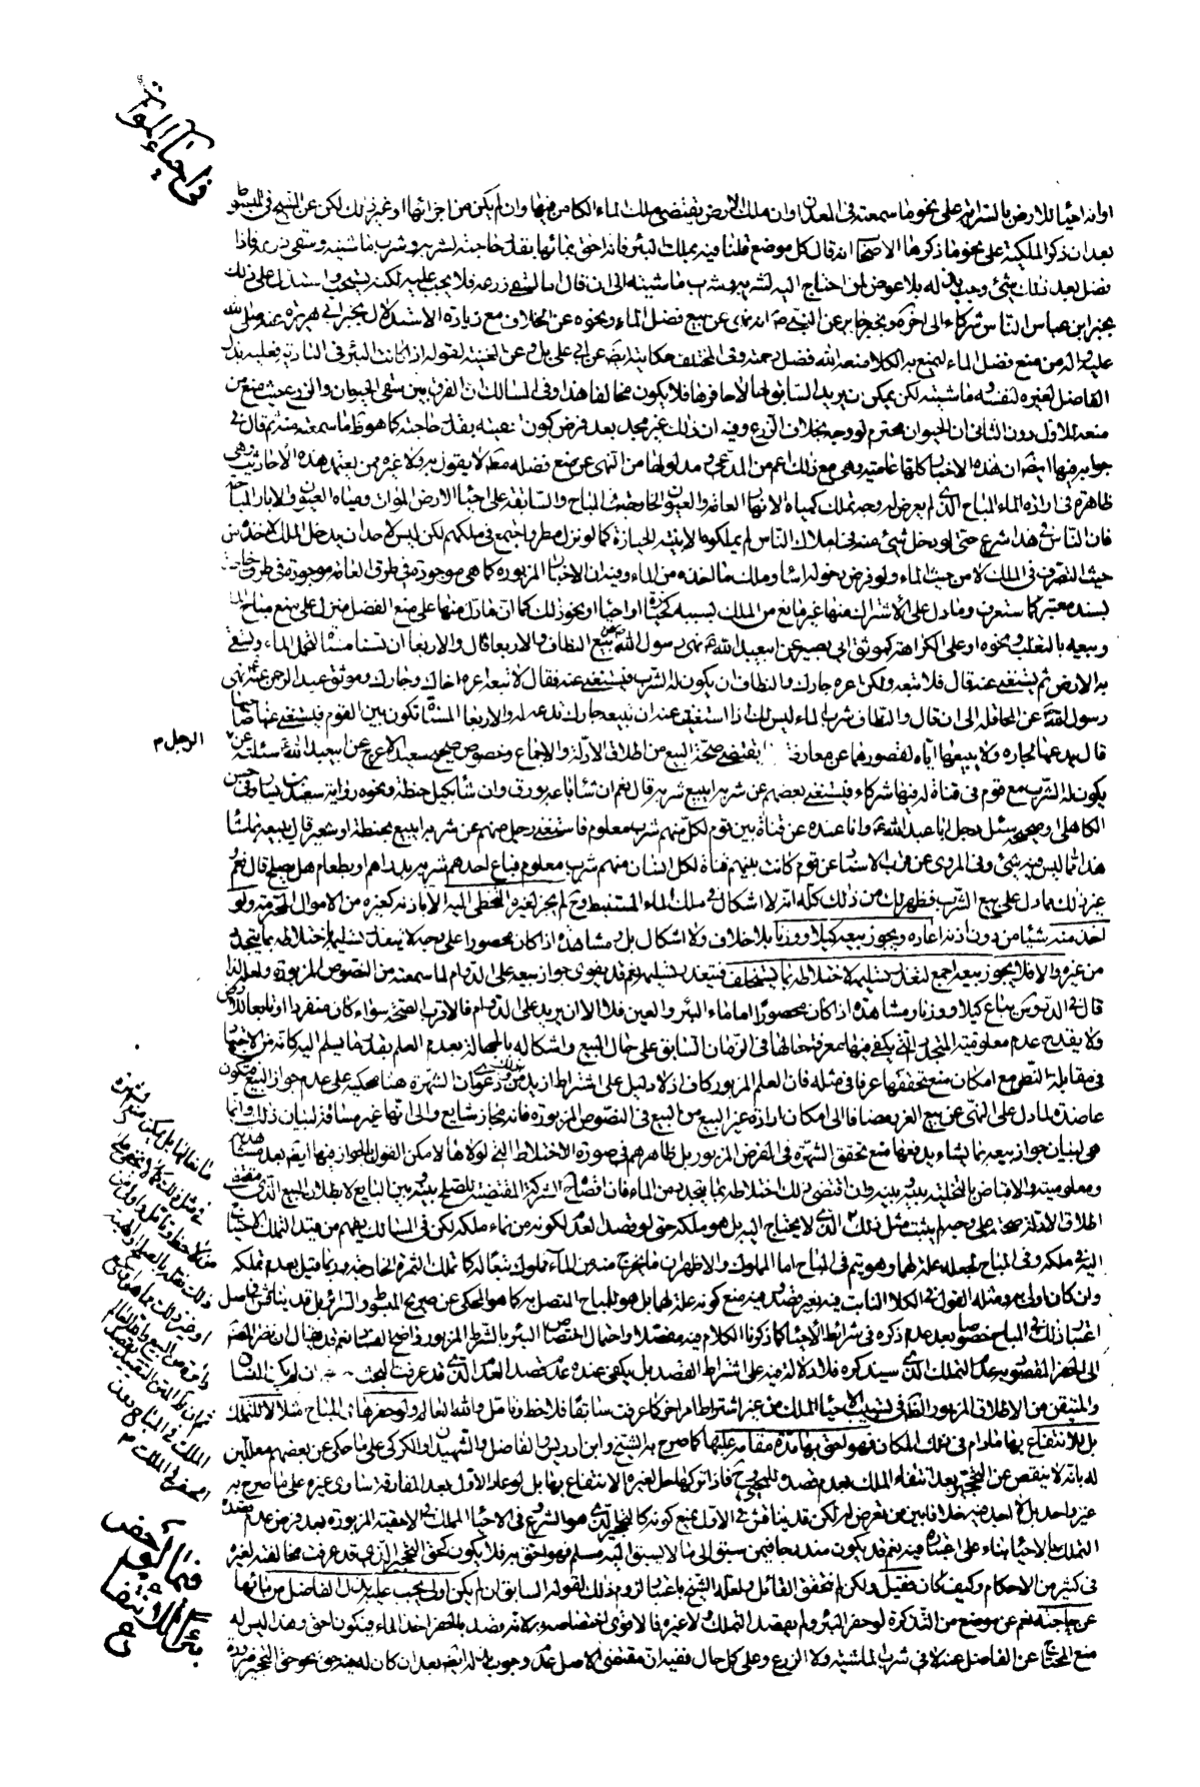 في احياء الموات
او انه احياء للارض بالشرائط على نحو ما سمعته في المعدن او ان ملك الارض يقتضي ملك الماء الكامن فيها وان لم يكن من اجزائها او غير ذلك لكن عن الشيخ في المبسوط
بعد ان ذكر الملكية على نحو ما ذكرها الاصحاب انه قال كل موضع قلنا فيه يملك البئر فانه احق بمائها بقدر حاجته لشربه وشرب ماشيته وسقي زرعه فاذا
فضل بعد ذلك شيء وجب بذله بلا عوض لمن احتاج اليه لشربه وشرب ماشيته الى ان قال اما لسقي زرعه فلا يجب عليه لكنه يستحب واستدل على ذلك
بخبر ابن عباس الناس شركاء الى اخره وبخبر جابر عن النبي ص انه نهى عن بيع فضل الماء ونحوه عن الخلاف مع زيادة الاستدلال بخبر ابي هريرة عنه صلى الله
عليه واله من منع فضل الماء ليمنع به الكلاء منعه الله فضل رحمته وفي المختلف حكايته ايضا عن ابي علي بل وعن الغنية لقوله اذا كانت البئر في البادية فعليه بذل
الفاضل لغيره لنفسه وماشيته لكن يمكن ان يريد السابق لها لا حافرها فلا يكون مخالفا هذا وفي المسالك ان الفرق بين سقي الحيوان والزرع حيث منع من
منعه للاول دون الثاني ان الحيوان محترم لروحه بخلاف الزرع وفيه ان ذلك غير مجد بعد فرض كون نفسه بقدر حاجته كما هو ظ ما سمعته منه ثم قال في
جوابه فيها ايضا ان هذه الاخبار كلها عامية وهي مع ذلك اعم من المدعى ومدلولها من النهي عن منع فضله مطلقا لا يقول به ولا غيره ممن يعتمد هذه الاحاديث وهي
ظاهرة في ارادة الماء المباح الذي لم يعرض له وجه تملك كمياه الانهار العامة والعيون الخارجة في المباح والسابقة على احياء الارض الموات ومياه العيون والابار المباحة
فان الناس في هذا شرع حتى لو دخل شيء منه في املاك الناس لم يملكوه الا بنية الحيازة كما لو نزل مطر واجتمع في ملكهم لكن ليس لاحد ان يدخل الملك لاخذه من
حيث التصرف في الملك لا من حيث الماء ولو فرض دخوله اساء وملك ما اخذه من الماء وفيه ان الاخبار المزبورة كما هي موجودة في طرق العامة موجودة في طرق خاصة
بسند معتبر كما ستعرف وما دل على الاشتراك منها غير مانع من الملك بسببه كحيازة او احياء او نحو ذلك كما ان ما دل منها على منع الفضل منزل على منع مباح الماء
وبيعه بالتغلب ونحوه او على الكراهة كموثق ابي بصير عن ابي عبد الله ع نهى رسول الله ص عن بيع النطاف والاربعاء قال والاربعاء ان تسنا مسناة لتحمل الماء وتسقي
به الارض ثم يستغنى عنه قال فلا تبعه ولكن اعره جارك والنطاف ان يكون له الشرب فيستغني عنه فقال لا تبعه اعره اخاك او جارك وموثق عبد الرحمن عنه نهى
رسول الله عن المحاقلة الى ان قال والنطاف شرب الماء ليس لك اذا استغنيت عنه ان تبيعه جارك تدعه له والاربعاء المسناة تكون بين القوم فيستغني عنها صاحبها
قال يدعها لجاره ولا يبيعها اياه لقصورهما عن معارضة يقتضي صحة البيع من اطلاق الادلة والاجماع وخصوص صحيح سعيد الاعرج عن ابي عبد الله سئلته عن
الرجل م
يكون له الشرب مع قوم في قناة له فيها شركاء فيستغني بعضهم عن شربه ايبيع شربه قال نعم ان شاء باعه بورق وان شاء بكيل حنطة ونحوه رواية سعيد بن يسار وفي حسن
الكاهلي او صحيحه سئل رجل ابا عبد الله ع وانا عنده عن قناة بين قوم لكل منهم شرب معلوم فاستغنى رجل منهم عن شربه ايبيع بحنطة او شعير قال يبيعه بما شاء
هذا مما ليس فيه شيء وفي المروي عن قرب الاسناد عن قوم كانت بينهم قناة لكل انسان منهم شرب معلوم فباع احدهم شربه بدراهم او بطعام هل يصلح قال نعم و
غير ذلك مما دل على بيع الشرب فظهر لك من ذلك كله انه لا اشكال في ملك الماء المستنبط وح لم يجز لغيره التخطي اليه الا باذنه كغيره من الاموال المحترمة ولو
اخذ منه شيئا من دون اذنه اعاده ويجوز بيعه كيلا ووزنا بلا خلاف ولا اشكال بل ومشاهدة اذا كان محصورا على وجه لا يتعذر تسليمه لاختلاطه بما يتجدد
من غيره والا فلا يجوز بيعه اجمع لتعذر تسليمه لاختلاطه بما يستخلف فيتعذر تسليمه نعم قد يقوى جواز بيعه على الدوام لما سمعته من النصوص المزبورة ولعله لذا
قال في الدروس يباع كيلا ووزنا ومشاهدة اذا كان محصورا اما ماء البئر والعين فلا الا ان يريد على الدوام فالاقرب الصحة سواء كان منفردا او تابعا للارض
ولا يقدح عدم معلومية المتجدد التي يكفي فيها معرفة حالها في الزمان السابق على حال البيع واشكاله بالجهالة بعدم العلم بقدر ما يسلم اليه كانه من الاجتهاد
في مقابلة النص مع امكان منع تحققها عرفا في مثله فان العلم المزبور كاف اذ لا دليل على اشتراط ازيد من ذلك ودعوى ان الشهرة هنا محكية على عدم جواز البيع فتكون
عاضدة لما دل على النهي عن بيع الغرر مضافا الى امكان ارادة غير البيع من البيع في النصوص المزبورة فانه مجاز شايع والى انها غير مساقة لبيان ذلك وانما
هي لبيان جواز بيعه بما يشاء يدفعها منع تحقق الشهرة في الفرض المزبور بل ظاهرهم في صورة الاختلاط التي لولاها لامكن القول بالجواز فيها ايضا بعد مشاهدته
ومعلوميته والاقباض بالتخلية بينه وبينه وان اقتضى ذلك اختلاطه بما يتجدد من الماء فان اقصاه الشركة المقتضية للصلح بينه وبين البايع لا بطلان البيع الذي مقتضى
اطلاق الادلة صحته على وجه لم يثبت مثل ذلك الذي لا يحتاج اليه بل هو ملكه حتى لو قصد العدم لكونه من نماء ملكه لكن في المسالك يفهم من قيد التملك لاحتياج
النية في ملكه وفي المباح لجعله علة لهما وهو يتم في المباح اما المملوك والاظهر ان ما يخرج منه من الماء مملوك تبعا له كما تملك الثمرة الخارجة وربما قيل بعدم تملكه
وان كان اولى به ومثله القول في الكلاء النابت فيه بغير قصد وفيه منع كونه علة لهما بل هو للمباح المتصل به كما هو المحكي عن صريح المبسوط والسرائر بل قد يناقش في اصل
اعتبار ذلك في المباح خصوصا بعد عدم ذكره في شرائط الاحياء كما ذكرنا الكلام فيه مفصلا واحتمال اختصاص البئر بالشرط المزبور واضح الفساد نعم قد يقال ان نظر المصنف
الى الحفر المقصود به عدم التملك الذي سيذكره فلا دلالة فيه على اشتراط القصد بل يكفي عنده عدم قصد العدم الذي قد عرفت البحث
والمتيقن من الاطلاق المزبور الظاهر في تسبيب الاحياء الملك من غير اشتراط امر اخر كما عرفت سابقا فلاحظ وتامل والله العالم ولو حفرها في المباح مثلا لا للتملك
بل للانتفاع بها ما دام في ذلك المكان فهو احق بها مدة مقامه عليها كما صرح به الشيخ وابن ادريس والفاضل والشهيدان والكركي على ما حكي عن بعضهم معللين
له بانه لا ينقص عن التحجير بعد انتفاء الملك بعدم قصده للمحيي وح فاذا تركها حل لغيره الانتفاع بها بل لو عاد الاول بعد المفارقة تساوى غيره على ما صرح به
غير واحد بل لا اجد فيه خلافا بين من تعرض له لكن قد يناقش في الاول بمنع كونه كالتحجير الذي هو الشروع في الاحياء المملك في الاحقية المزبورة بعد فرض عدم قصده
التملك بالاحياء بناء على اعتباره فيه نعم قد يكون مندرجا فيمن سبق الى ما لا يسبق اليه مسلم فهو احق به فلا يكون كحق التحجير الذي قد عرفت مخالفته لغيره
في كثير من الاحكام وكيف كان فقيل ولكن لم نتحقق القائل ولعله الشيخ باعتبار لزوم ذلك لقوله السابق ان لم يكن اولى يجب عليه بذل الفاضل من مائها
عن حاجته نعم عن موضع من التذكرة لو حفر البئر ولم يقصد التملك ولا غيره فالاقوى اختصاصه به لانه قصد بالحفر اخذ الماء فيكون احق وهذا ليس له
منع المحتاج عن الفاضل عنه لا في شرب الماشية ولا الزرع وعلى كل حال ففيه ان مقتضى الاصل عدم وجوب بذله ايضا بعد ان كان له فيه حق نحو حق التحجير
فيما لو حفر
بئرا للانتفاع